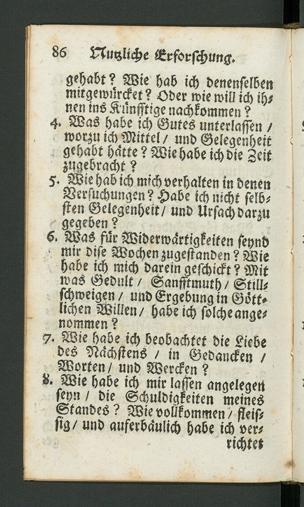 86 Nutzliche Erforschung.
gehabt? Wie hab ich denenselben
mitgewürcket? Oder wie will ich ih-
nen ins Künfftige nachkommen?
4. Was habe ich Gutes unterlassen /
worzu ich Mittel / und Gelegenheit
gehabt hätte? Wie habe ich die Zeit
zugebracht?
5. Wie hab ich mich verhalten in denen
Versuchungen? Habe ich nicht selb-
sten Gelegenheit / und Ursach darzu
gegeben?
6. Was für Widerwärtigkeiten seynd
mir dise Wochen zugestanden? Wie
habe ich mich darein geschickt? Mit
was Gedult / Sanfftmuth / Still-
schweigen / und Ergebung in Gött-
lichen Willen / habe ich solche ange-
nommen?
7. Wie habe ich beobachtet die Liebe
des Nächstens / in Gedancken /
Worten / und Wercken?
8. Wie habe ich mir lassen angelegen
seyn / die Schuldigkeiten meines
Standes? Wie vollkommen / fleis-
sig / und auferbäulich habe ich ver-
richtet